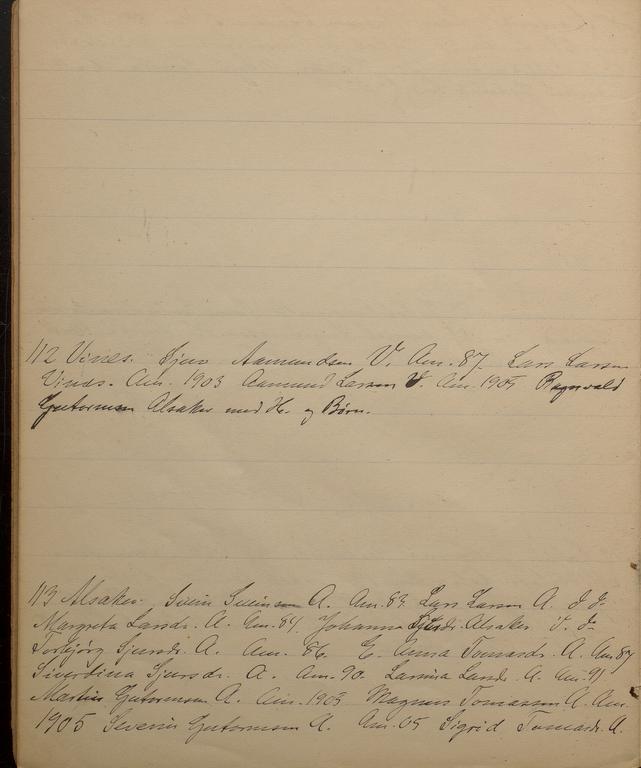 112 Vines. Sjur Aamundsen V. Am. 87. Lars Larsen
Vines. Am. 1903 Aamund Larsen V. Am. 1905 Ragnvald
Guttormsen Alsaker med H. og Børn.
113 Alsaker. Svein Sveinsen A. Am. 83. Lars Larsen A. d. d.
Margreta Larsdr. A. Am. 84. Johanna Alsaker d.
Torbjørg Sjursdr. A. Am. 86. E. Anna Tomasdr. A. Am 87
Sivertina Sjursdr. A. Am. 90. Larsina Larsd. A. Am. 91
Martin Guttormsen A. Am. 1903 Magnus Tomassen A. Am.
1905 Severin Guttormsen A. Am. 05 Sigrid Tomasdr. A.